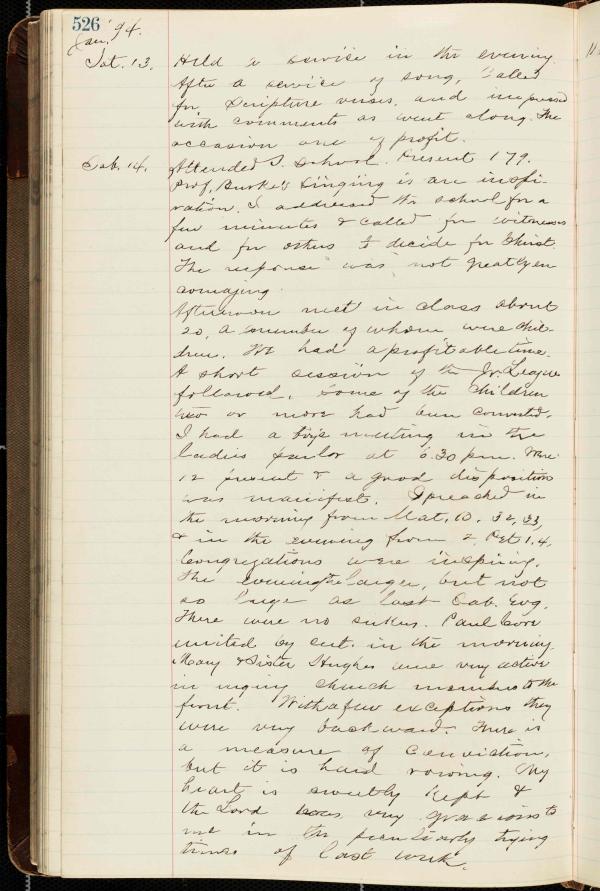 526
Jan. '94.
Sat. 13. Held a service in the evening.
After a service of song, called
for Scripture verses, and impressed
with comments as went along. The
occasion one of profit.
Sab. 14. Attended S. School. Present 179.
Prof. Burke's singing is an inspi-
ration. I addressed the school for a
few minutes & called for witnesses
and for others to decide for Christ.
The response was not greatly en
couraging.
Afternoon met in class about
20, a number of whom were chil-
dren. We had a profitable time.
A short session of the Jr. League
followed. Some of the children
two or more had been converted.
I had a boys meeting in the
ladies parlor at 6.30 p.m. Were
12 present & a good disposition
was manifest. I preached in
the morning from Mat. 10. 32, 33,
& in the evening from 2 Pet 1, 4,
Congregations were inspiring.
The evening the larger, but not
so large as last Sab. Evg.
There were no seekers. Paul
united by cert. in the morning.
Mary & Sister Hughes were very active
in urging church members to the
front. With a few exceptions they
were very backward. There is
a measure of conviction,
but it is hard rowing. My
heart is sweetly kept &
the Lord was very gracious to
me in the peculiarly trying
times of last week.